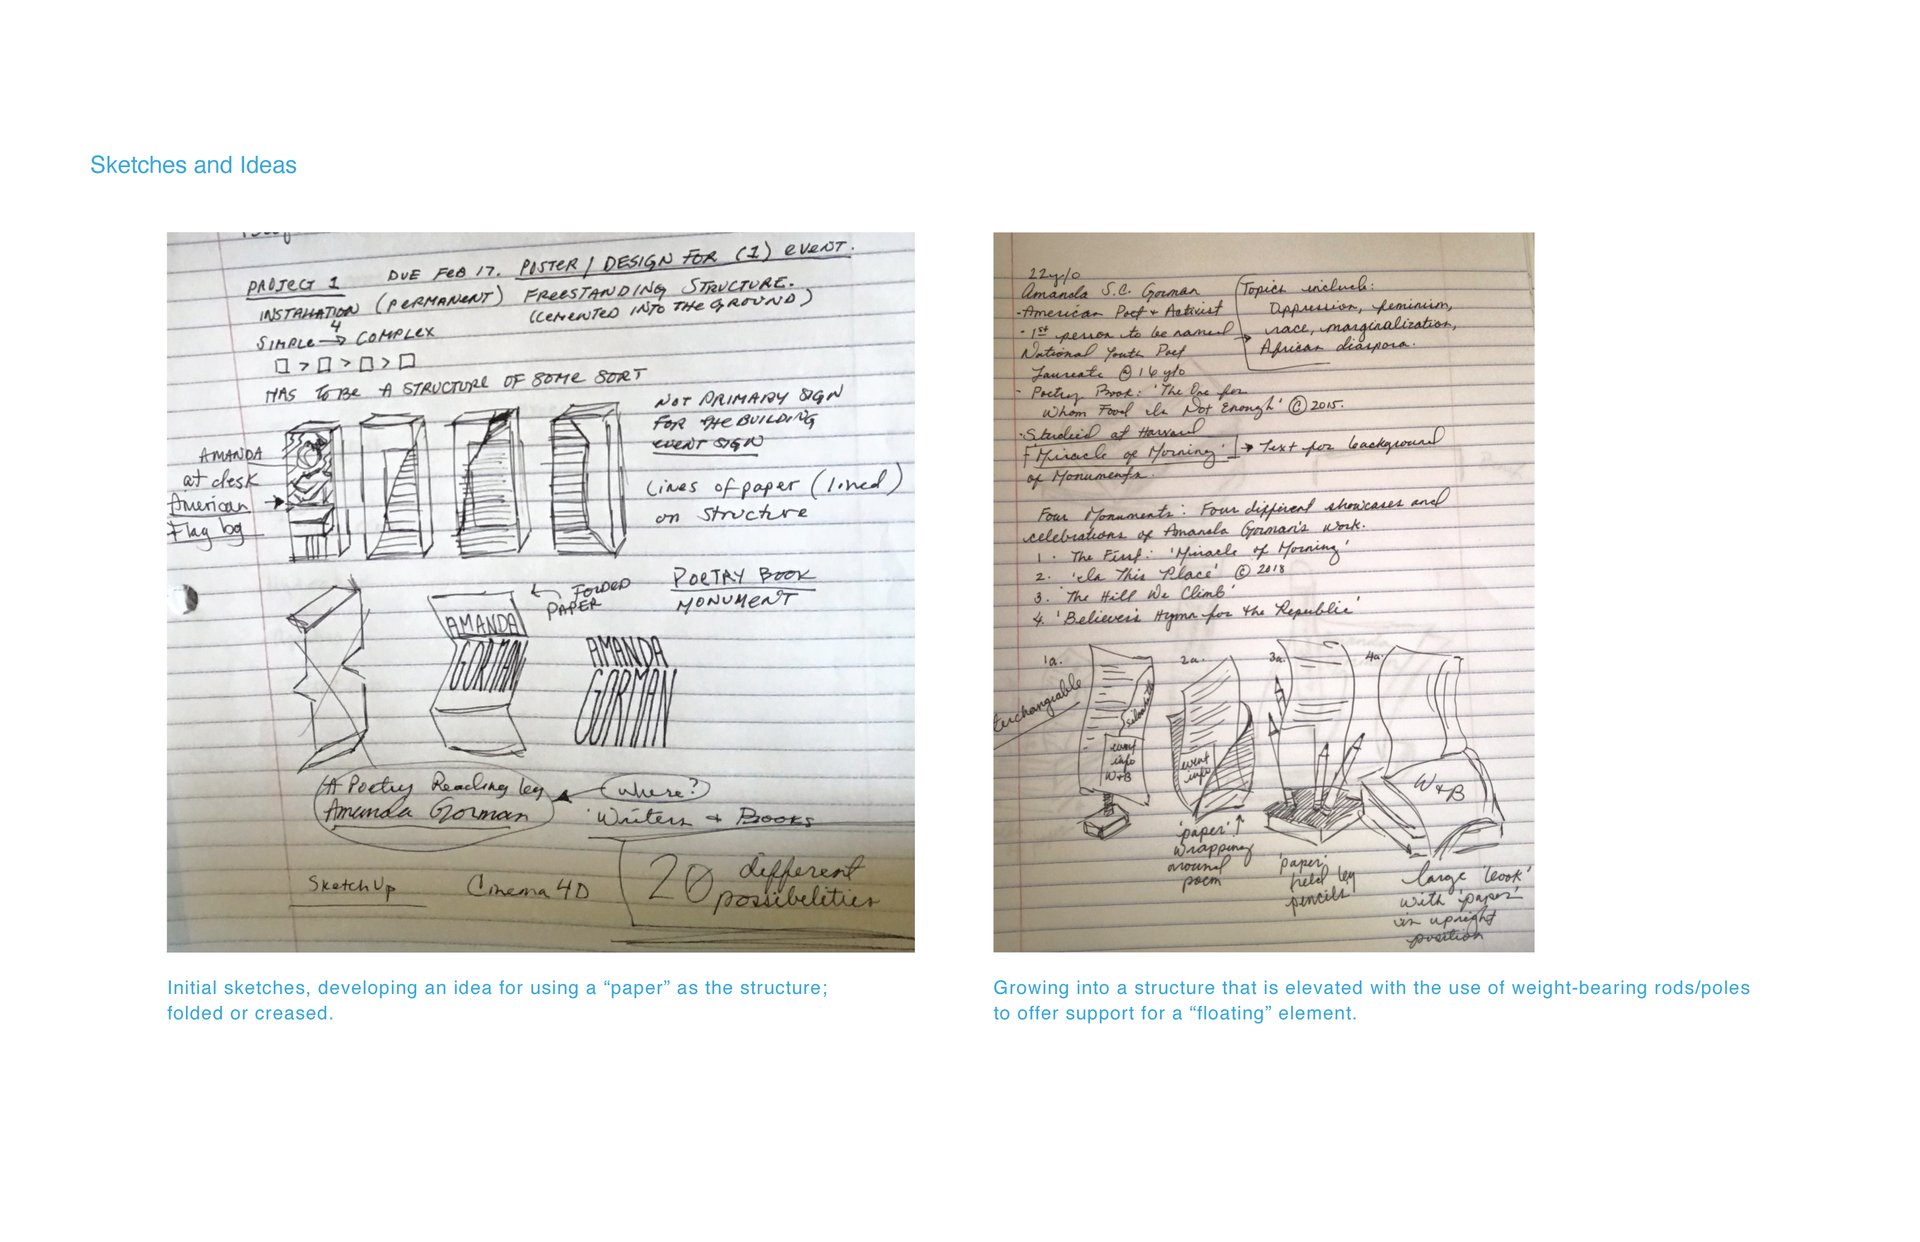 Sketches and Ideas
PROJECT 1 DUE FEB 17. POSTER / DESIGN FOR (1) EVENT.
INSTALLATION (PERMANENT) FREESTANDING STRUCTURE.
(CEMENTED INTO THE GROUND)
4
SIMPLE → COMPLEX
□ > □ > □ > □
HAS TO BE A STRUCTURE OF SOME SORT
NOT PRIMARY SIGN
FOR THE BUILDING
EVENT SIGN
AMANDA
at desk
American
Flag bg
Lines of paper (lined)
on structure
FOLDED
PAPER
POETRY BOOK
MONUMENT
AMANDA
GORMAN
AMANDA
GORMAN
A Poetry Reading by
Amanda Gorman
Where?
Writers & Books
SketchUp
Cinema 4D
20 different
possibilities
Initial sketches, developing an idea for using a “paper” as the structure;
folded or creased.
22y/o
Amanda S.C. Gorman
-American Poet + Activist
- 1st person to be named
National Youth Poet
Laureate @ 16 y/o
- Poetry Book: 'The One for
Whom Food Is Not Enough' © 2015.
-Studied at Harvard
'Miracle of Morning' → Text for background
of Monuments.
Topics include:
Oppression, feminism,
race, marginalization,
African diaspora.
Four Monuments: Four different showcases and
celebrations of Amanda Gorman's work.
1. The First: 'Miracle of Morning'
2. 'In This Place' © 2018
3. 'The Hill We Climb'
4. 'Believer's Hymn for the Republic'
1a.
2a.
3a.
4a.
terchangeable
event
info
W+B
event
info
W+B
'paper' ↑
wrapping
around
poem
'paper'
held by
pencils
large 'book'
with 'paper'
in upright
position
Growing into a structure that is elevated with the use of weight-bearing rods/poles
to offer support for a “floating” element.